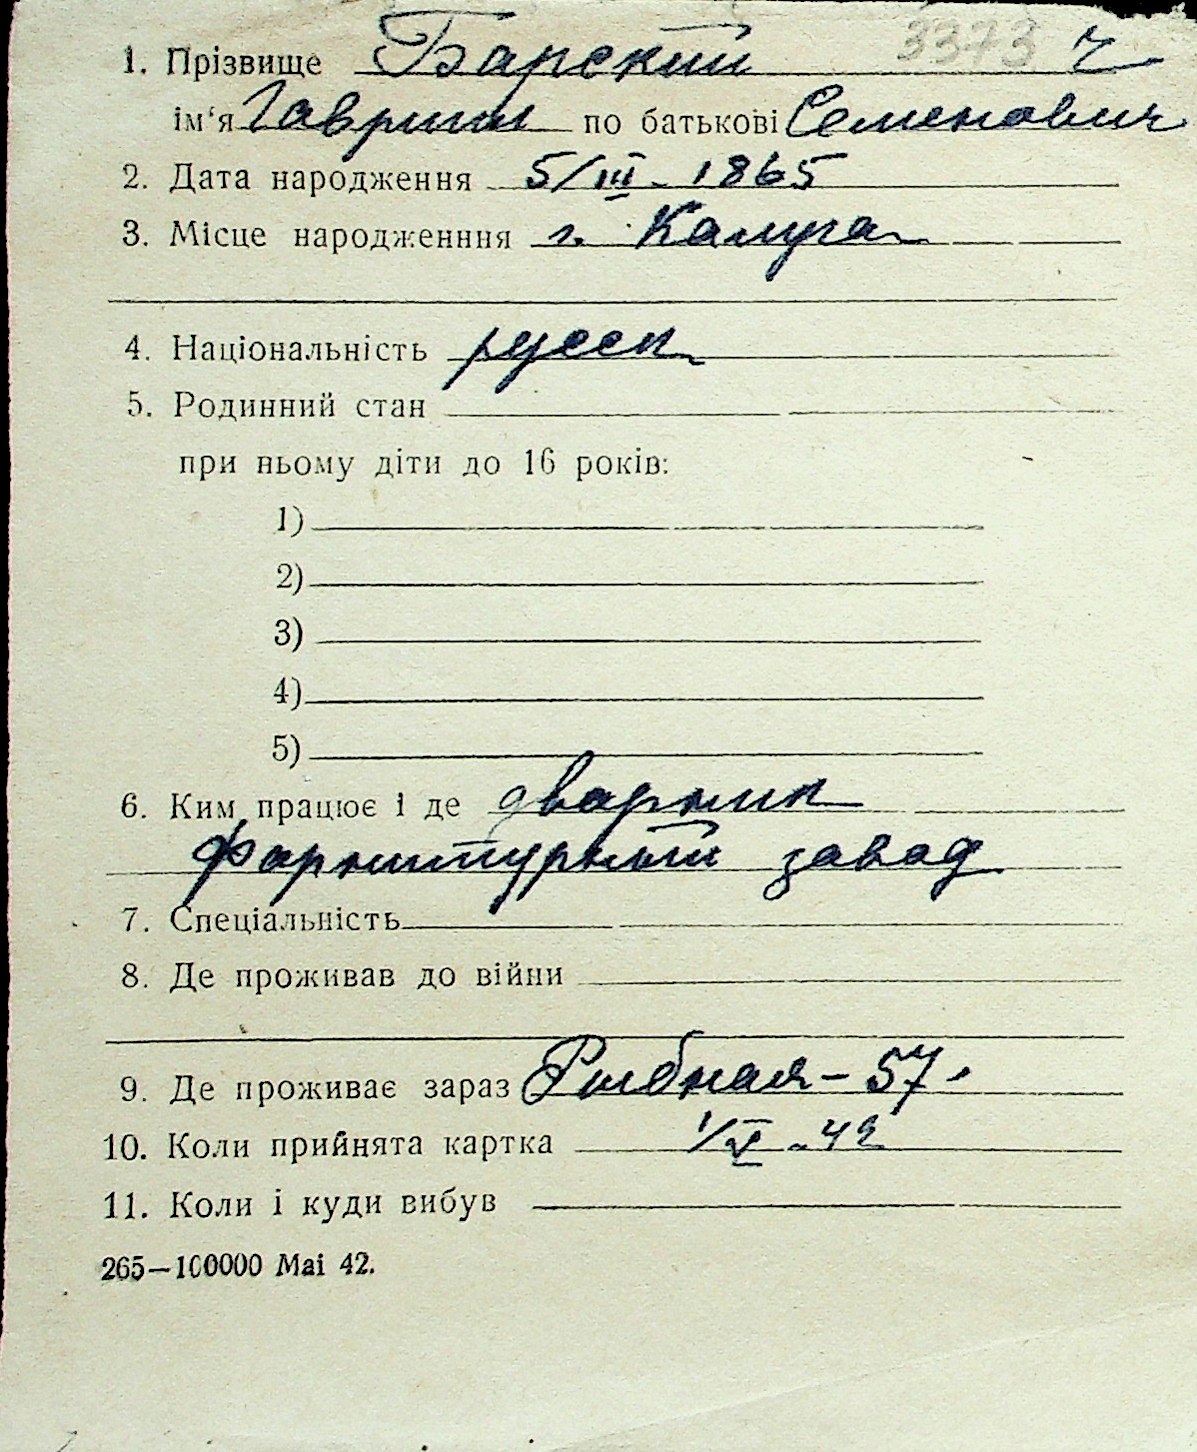 3373
1. Прізвище Барский ч
ім'я Гавриил по батькові Семенович
2. Дата народження 5/III - 1865
3. Місце народженння г. Калуга
4. Національність русск
5. Родинний стан
при ньому діти до 16 років:
1)
2)
3)
4)
5)
6. Ким працює і де дварник
Фарнитурный завад
7. Спеціальність
8. Де проживав до війни
9. Де проживає зараз Рыбная - 57.
10. Коли прийнята картка 1/X - 42
11. Коли і куди вибув
265—100000 Mai 42.